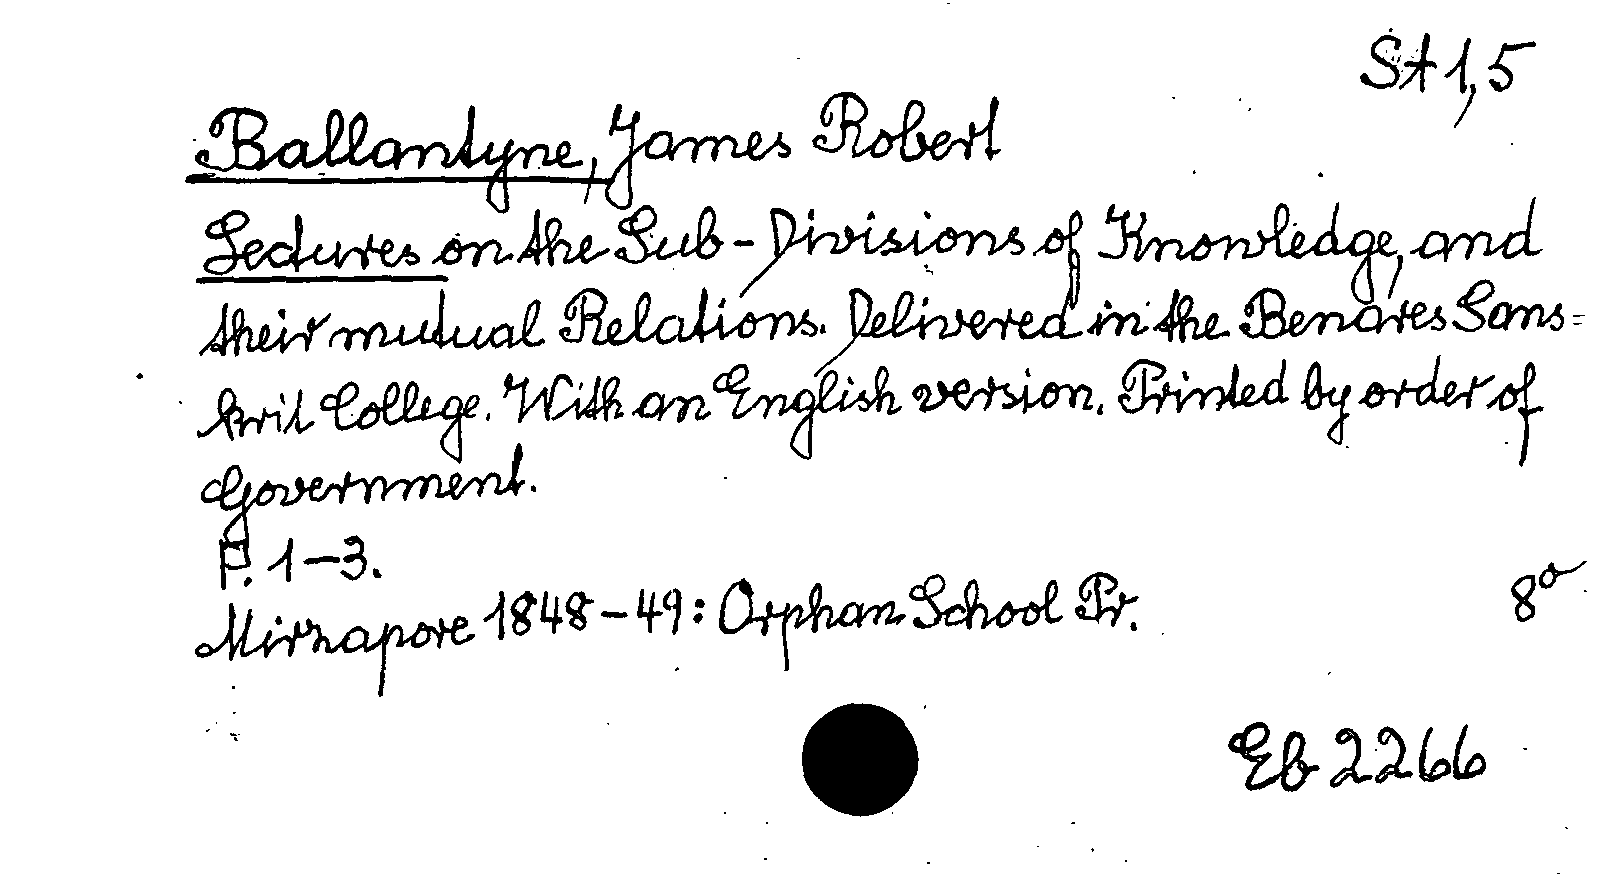 St 1,5
Ballantyne, James Robert
Lectures on the Sub-Divisions of Knowledge, and
their mutual Relations. Delivered in the Benares Sans=
krit College. With an English version. Printed by order of
Government.
P. 1-3.
Mirzapore 1848-49: Orphan School Pr. 8°
Eb 2266